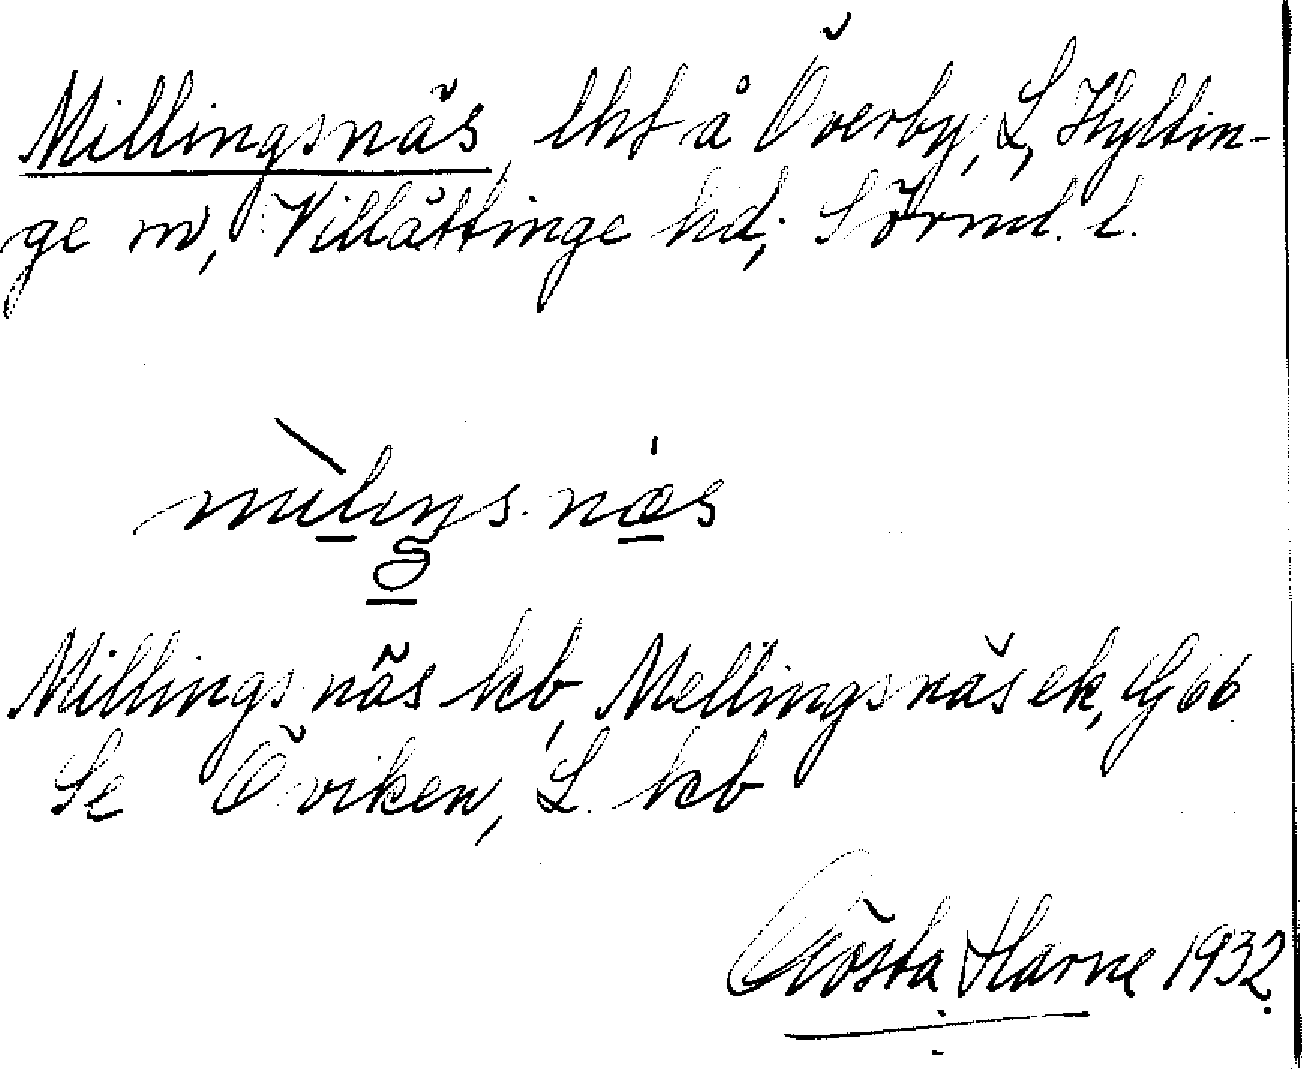 Millingsnäs, lht å Överby, L, Hyltin-
ge sn, Villåttinge hd; Sörml. l.
milıŋs. næs
Millingsnäs kb, Mellingsnäs ek, G66.
Se Öviken, L. kb
Gösta Harne 1932.